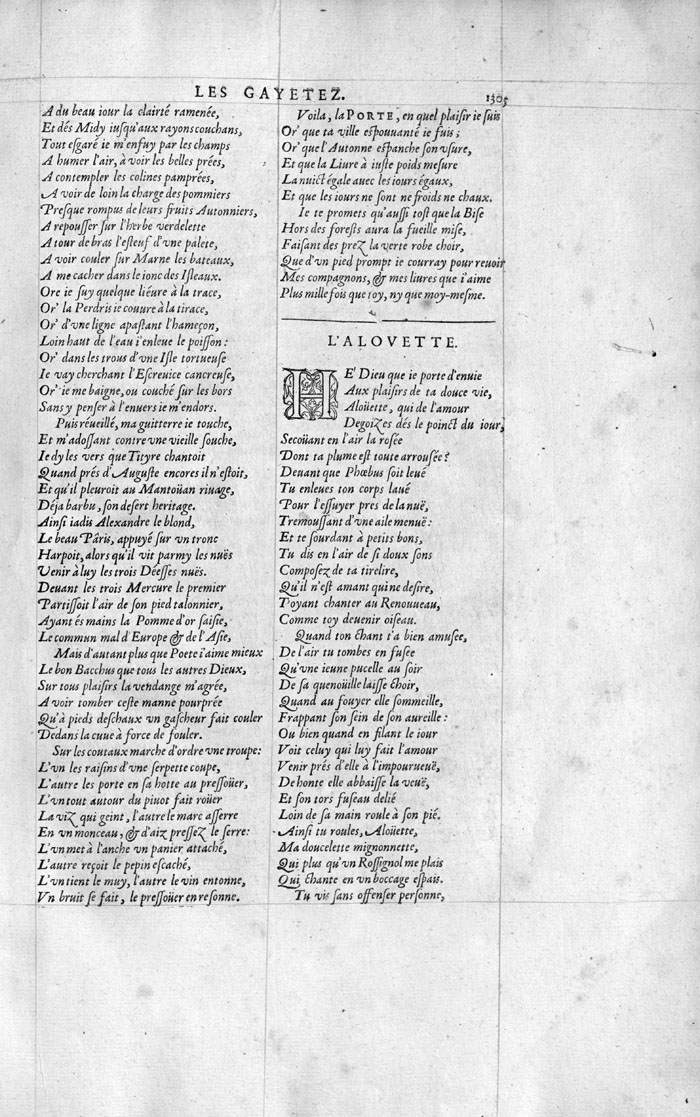 LES GAYETEZ.
1305
A du beau iour la clairté ramenée,
Et dés Midy iusqu'aux rayons couchans,
Tout esgaré ie m'enfuy par les champs
A humer l'air, à voir les belles prées,
A contempler les colines pamprées,
A voir de loin la charge des pommiers
Presque rompus de leurs fruits Autonniers,
A repousser sur l'herbe verdelette
A tour de bras l'esteuf d'vne palete,
A voir couler sur Marne les bateaux,
A me cacher dans le ionc des Isleaux.
Ore ie suy quelque liéure à la trace,
Or' la Perdris ie couure à la tirace,
Or' d'vne ligne apastant l'hameçon,
Loin haut de l'eau i'enleue le poisson:
Or' dans les trous d'vne Isle tortueuse
Ie vay cherchant l'Escreuice cancreuse,
Or' ie me baigne, ou couché sur les bors
Sans y penser à l'enuers ie m'endors.
Puis réueillé, ma guitterre ie touche,
Et m'adossant contre vne vieille souche,
Ie dy les vers que Tityre chantoit
Quand prés d'Auguste encores il n'estoit,
Et qu'il pleuroit au Mantoüan riuage,
Déja barbu, son desert heritage.
Ainsi iadis Alexandre le blond,
Le beau Pâris, appuyé sur vn tronc
Harpoit, alors qu'il vit parmy les nuës
Venir à luy les trois Déesses nuës.
Deuant les trois Mercure le premier
Partissoit l'air de son pied talonnier,
Ayant és mains la Pomme d'or saisie,
Le commun mal d'Europe & de l'Asie,
Mais d'autant plus que Poete i'aime mieux
Le bon Bacchus que tous les autres Dieux,
Sur tous plaisirs la vendange m'agrée,
A voir tomber ceste manne pourprée
Qu'à pieds deschaux vn gascheur fait couler
Dedans la cuue à force de fouler.
Sur les coutaux marche d'ordre vne troupe:
L'vn les raisins d'vne serpette coupe,
L'autre les porte en sa hotte au pressoüer,
L'vn tout autour du piuot fait roüer
La viz qui geint, l'autre le marc asserre
En vn monceau, & d'aiz pressez le serre:
L'vn met à l'anche vn panier attaché,
L'autre reçoit le pepin escaché,
L'vn tient le muy, l'autre le vin entonne,
Vn bruit se fait, le pressoüer en resonne.
Voila, la PORTE, en quel plaisir ie suis
Or' que ta ville espouuanté ie fuis;
Or' que l'Autonne espanche son vsure,
Et que la Liure à iuste poids mesure
La nuict égale auec les iours égaux,
Et que les iours ne sont ne froids ne chaux.
Ie te promets qu'aussi tost que la Bise
Hors des forests aura la fueille mise,
Faisant des prez la verte robe choir,
Que d'vn pied prompt ie courray pour reuoir
Mes compagnons, & mes liures que i'aime
Plus mille fois que toy, ny que moy-mesme.
L'ALOVETTE.
HE' Dieu que ie porte d'enuie
Aux plaisirs de ta douce vie,
Aloüette, qui de l'amour
Degoizes dés le poinct du iour,
Secoüant en l'air la rosée
Dont ta plume est toute arrousée?
Deuant que Phœbus soit leué
Tu enleues ton corps laué
Pour l'essuyer pres de la nuë,
Tremoussant d'vne aile menuë:
Et te sourdant à petits bons,
Tu dis en l'air de si doux sons
Composez de ta tirelire,
Qu'il n'est amant qui ne desire,
T'oyant chanter au Renouueau,
Comme toy deuenir oiseau.
Quand ton chant t'a bien amusee,
De l'air tu tombes en fusee
Qu'vne ieune pucelle au soir
De sa quenoüille laisse choir,
Quand au fouyer elle sommeille,
Frappant son sein de son aureille:
Ou bien quand en filant le iour
Voit celuy qui luy fait l'amour
Venir prés d'elle à l'impourueuë,
De honte elle abbaisse la veuë,
Et son tors fuseau delié
Loin de sa main roule à son pié.
Ainsi tu roules, Aloüette,
Ma doucelette mignonnette,
Qui plus qu'vn Rossignol me plais
Qui chante en vn boccage espais.
Tu vis sans offenser personne,